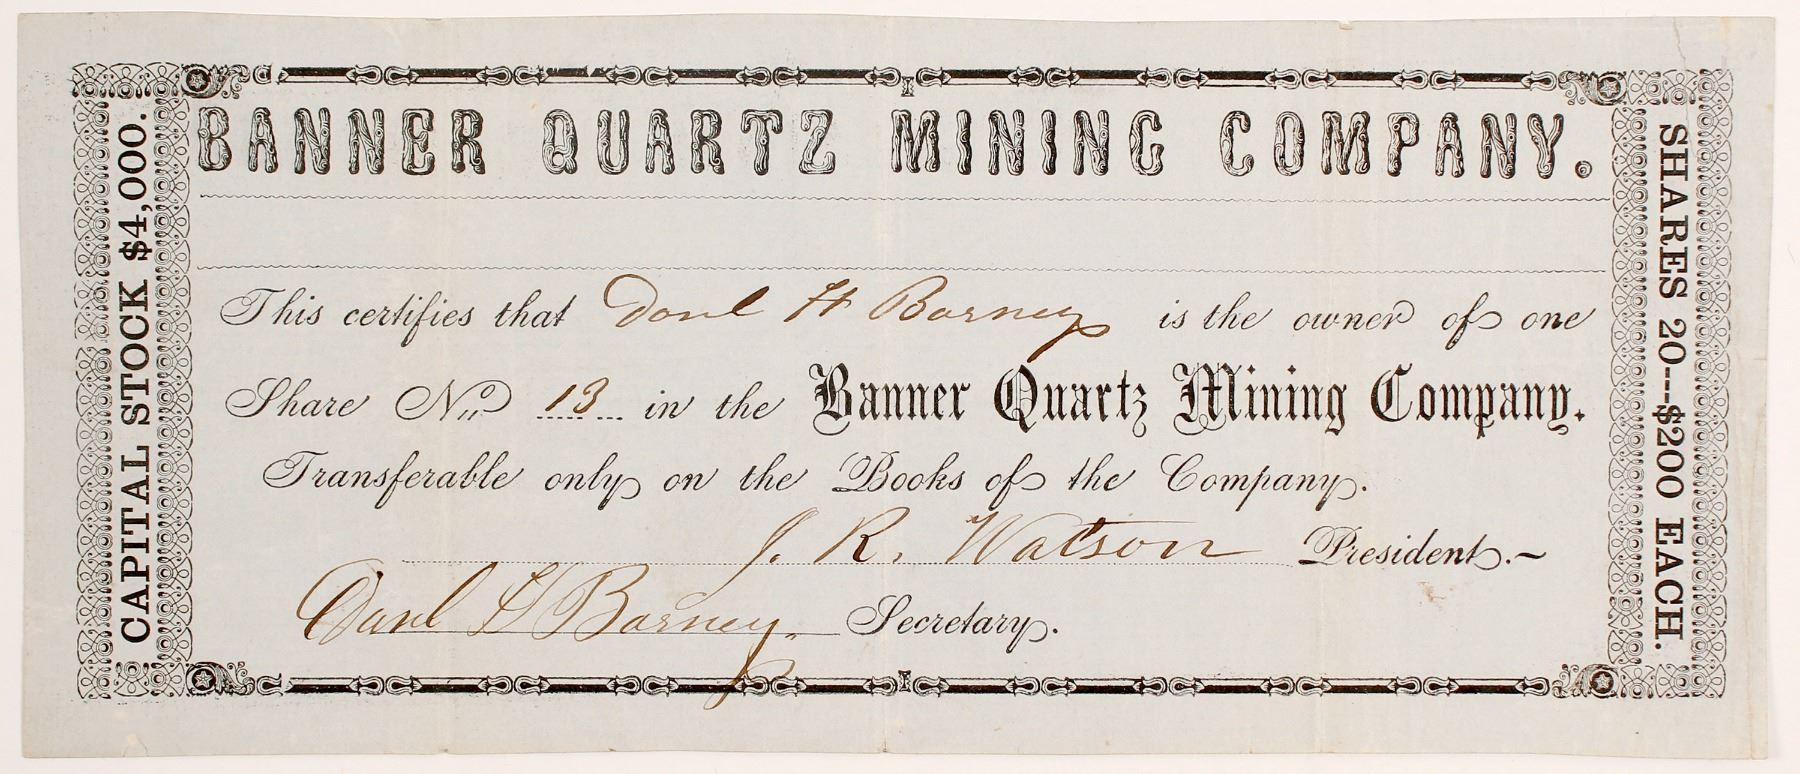 BANNER QUARTZ MINING COMPANY.
CAPITAL STOCK $4,000.
SHARES 20---$200 EACH.
This certifies that Danl H Barney is the owner of one
Share No. 13 in the Banner Quartz Mining Company.
Transferable only on the Books of the Company.
J. R. Watson President.~
Danl H Barney. Secretary.